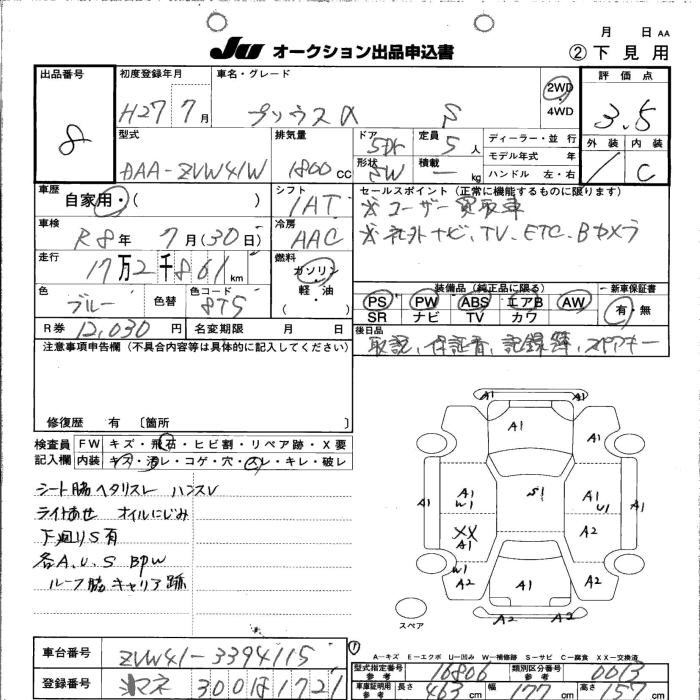 月 日 AA
JU オークション出品申込書
② 下見用
出品番号 8
初度登録年月 H27 7月
車名・グレード プリウスα S
2WD・4WD
評価点 3.5
外装 / 内装 C
型式 DAA-ZVW41W
排気量 1800 CC
ドア 5Dr
形状 SW
定員 5人
積載 — kg
ディーラー・並行
モデル年式 年
ハンドル 左・右
車歴 自家用・( )
シフト IAT
セールスポイント(正常に機能するものに限ります)
※ユーザー買取車
※社外ナビ、TV、ETC、Bカメラ
車検 R8年 7月(30日)
冷房 AAC
走行 17万2千861km
燃料 ガソリン・軽・油 ( )
色 ブルー
色替
色コード 8T5
装備品(純正品に限る)
PS PW ABS エアB AW
SR ナビ TV カワ
新車保証書 有・無
R券 12,030円
名変期限 月 日
後日品
取説、保証書、記録簿、スペアキー
注意事項申告欄(不具合内容等は具体的に記入してください)
修復歴 有 〔箇所 〕
検査員記入欄
FW キズ・飛石・ヒビ割・リペア跡・X要
内装 キズ・汚レ・コゲ・穴・スレ・キレ・破レ
シート脇ヘタリスレ ハンスレ
ライトあせ オイルにじみ
下廻りS有
各A、U、S BPW
ルーフ脇キャリア跡
A1 A1
A1 A1 A1
A1 A1 W1 S1 A1 U1 A1
XX A1 A2
W1 A2 A1 A2
A2 A2
スペア
A—キズ E—エクボ U—凹み W—補修跡 S—サビ C—腐食 XX—交換済
車台番号 ZVW41-3394115
①
型式指定番号 参考 16806
類別区分番号 参考 0013
登録番号 シマネ 300 は 1721
車庫証明用 参考 長さ 463 cm 幅 177 cm 高さ 157 cm